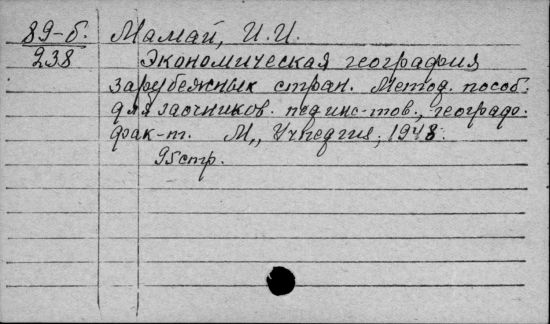 89-б. Мамай, И.И.
238 Экономическая география
зарубежных стран. Метод. пособ.
для заочников. пединс-тов., географ.
фак-т. М., Учпедгиз, 1948.
95 стр.